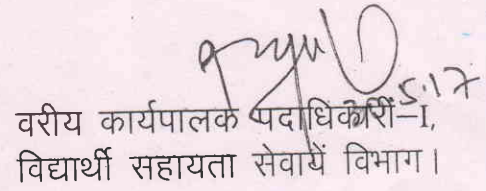 5.17
वरीय कार्यपालक पदाधिकारी–I,
विद्यार्थी सहायता सेवायें विभाग।